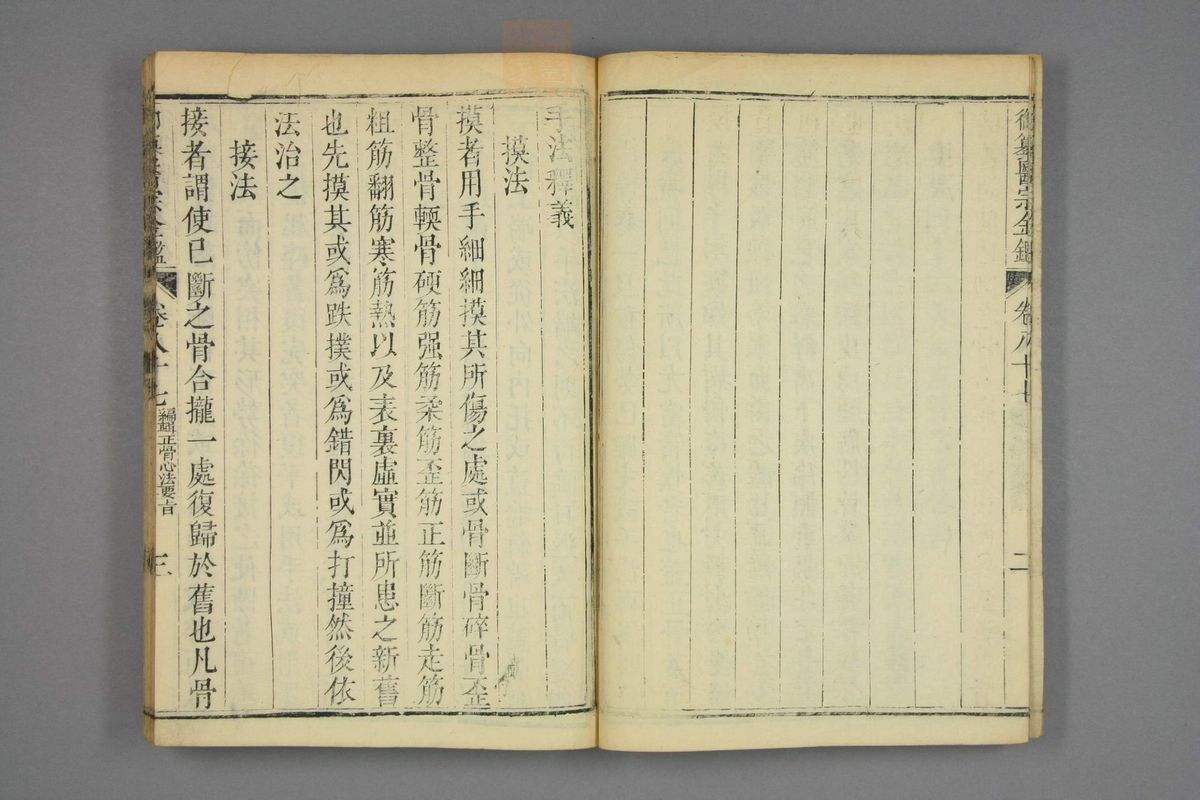 御纂醫宗金鑑 卷八十七
二
手法釋義
摸法
摸者用手細細摸其所傷之處或骨斷骨碎骨歪
骨整骨輭骨硬筋强筋柔筋歪筋正筋斷筋走筋
粗筋翻筋寒筋熱以及表裏虛實並所患之新舊
也先摸其或爲跌撲或爲錯閃或爲打撞然後依
法治之
接法
接者謂使已斷之骨合攏一處復歸於舊也凡骨
御纂醫宗金鑑 卷八十七 正骨心法要旨
三